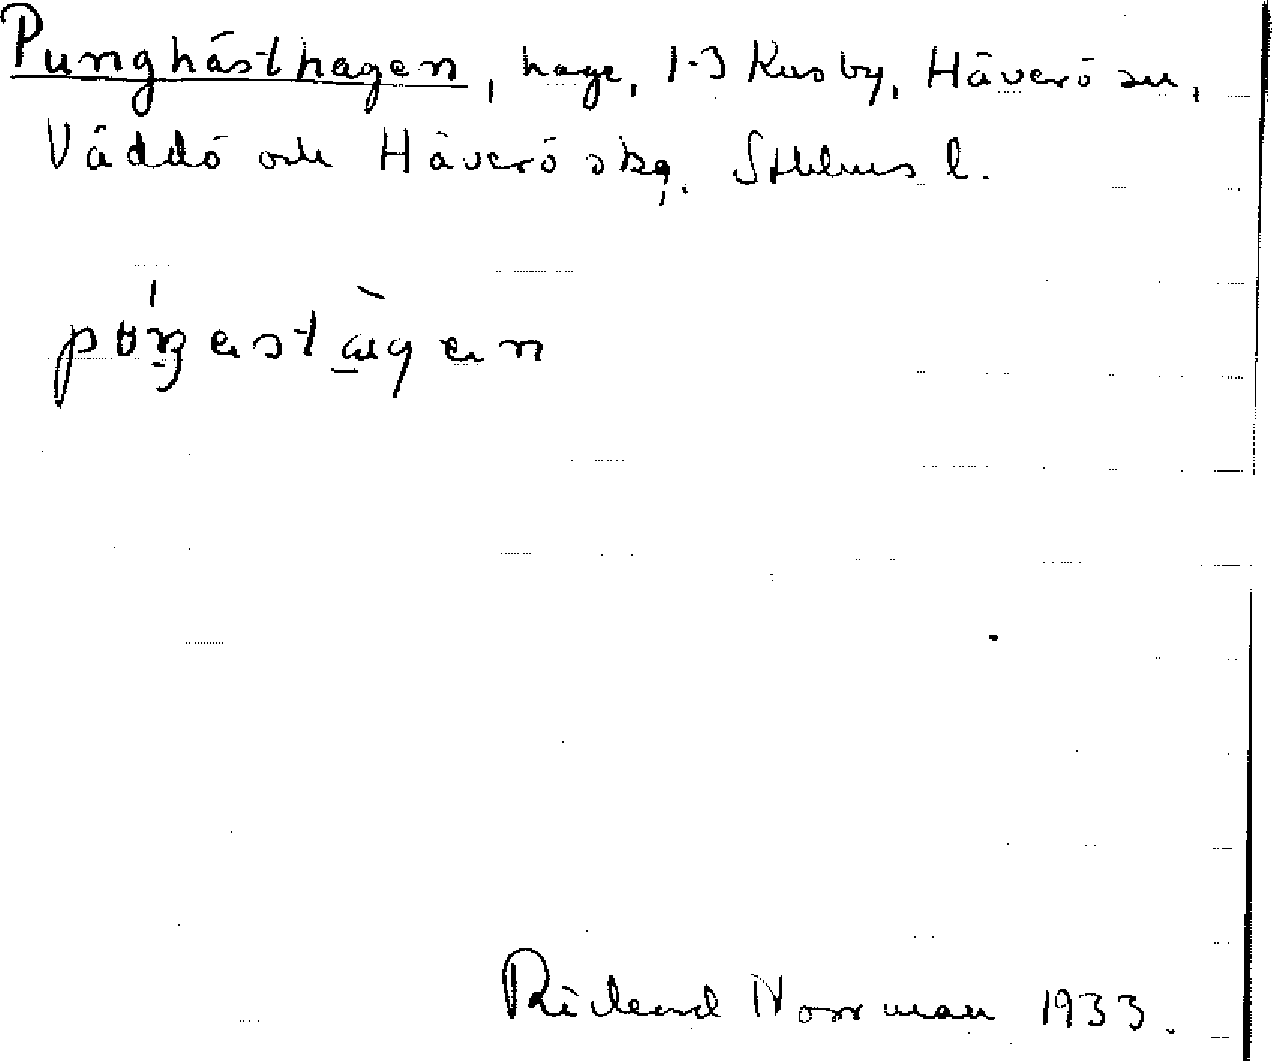 Punghästhagen, hage, 1-3 Kusby, Häverö sn,
Väddö och Häverö skg. Sthlms l.
pơŋɐstàgɐn
Rickard Norrman 1933.